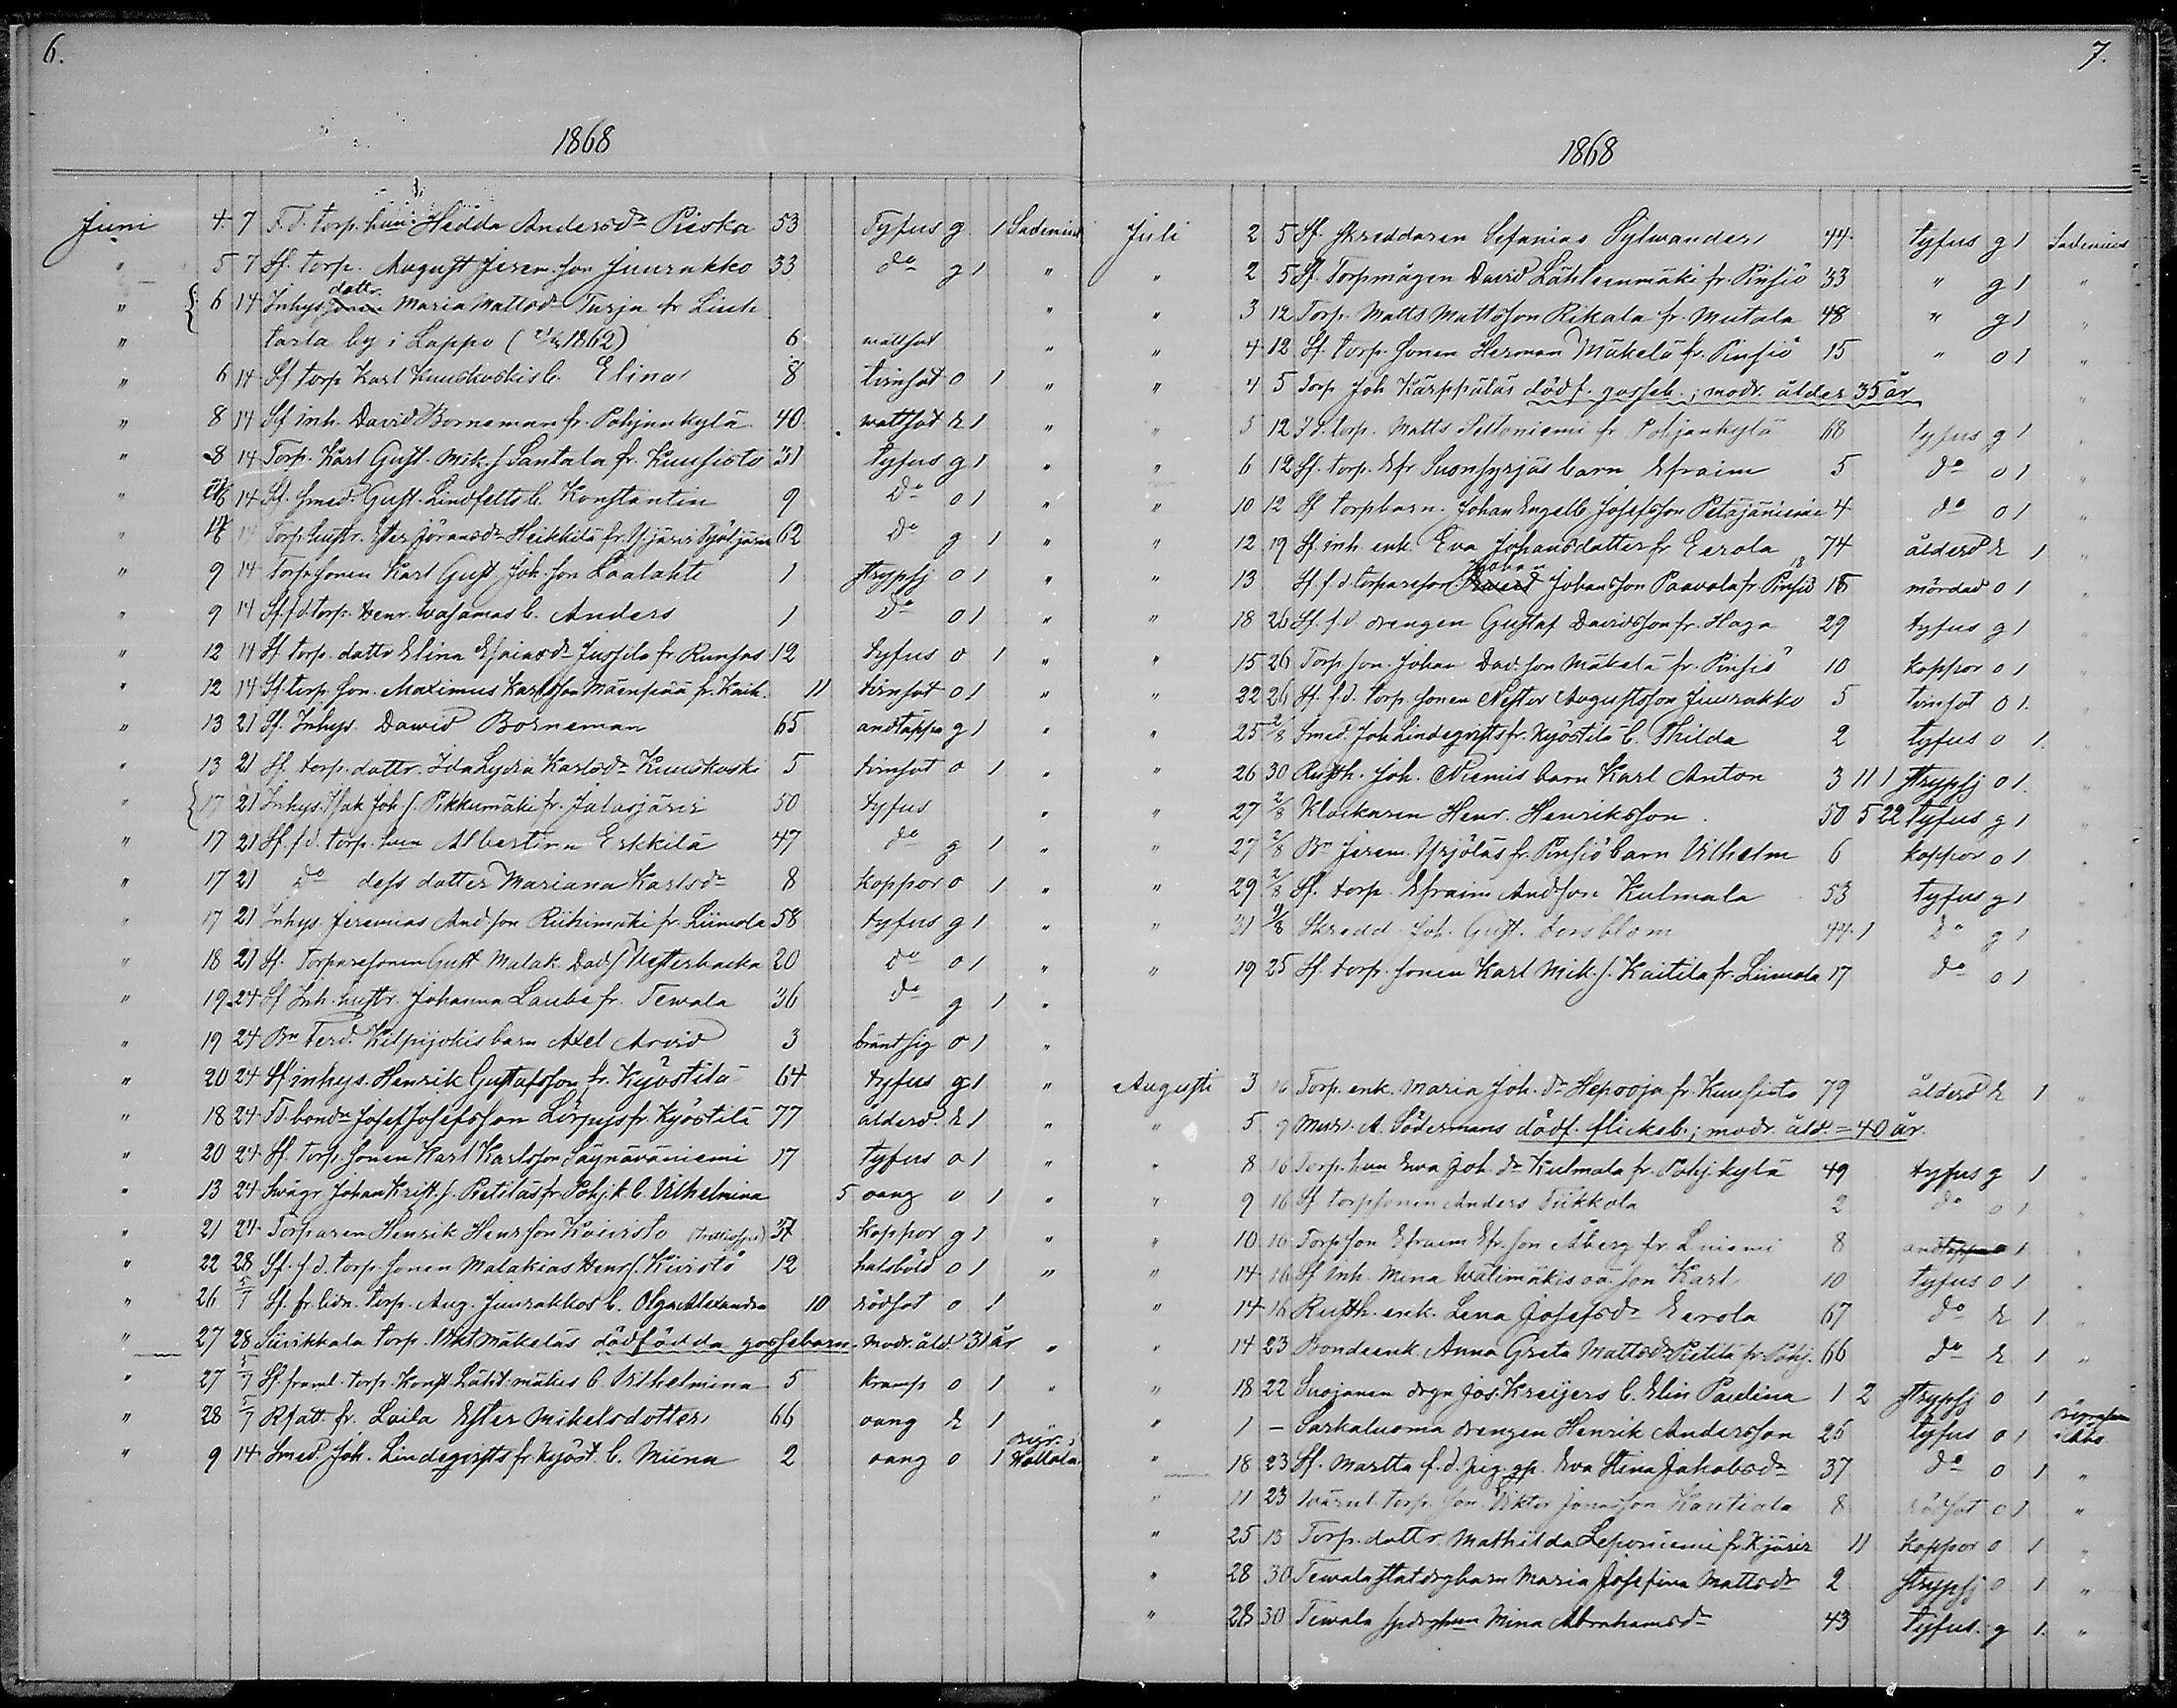 6.
1868
Juni 4 7 F.d. torp. hun Hedda Andersdr Pieska 53 Tyfus g 1 Sadenius
" 5 7 Sf. torp. August Jerem.son Juurakko 33 do g 1 "
" 6 14 Inhys. dottr. Maria Mattsdr Turja fr Liuh "
" tarla by i Lappo (1862) 6 wattsot "
" 6 14 Sf torp Karl Kuuskoskis b. Elina 8 twinsot o 1 "
" 8 14 Sf inh. David Borneman fr. Pohjankylä 40 wattsot E 1 "
" 8 14 Torp. Karl Gust. Mik.s Santala fr. Kuusisto 31 tyfus g 1 "
" 14 Sf. smed. Gust. Lindfelts b. Konstantin 9 Do o 1 "
" 14 Torp. hustr. Ester Göransdr Heikkilä fr. 62 Do g 1 "
" 9 14 Torp.sonen Karl Gust Joh.son Laalahti 1 strypsj o 1 "
" 9 14 Sf. f.d. torp. Henr. Wasamas b. Anders 1 Do o 1 "
" 12 14 Sf torp. dottr Elina Esaiasdr Jussila fr Runsas 12 tyfus o 1 "
" 12 14 Sf. torp. son. Maximus Karlsson Mäenpää fr. Kaik. 11 twinsot o 1 "
" 13 21 Sf. Inhys. Dawid Borneman 65 andtäppa g 1 "
" 13 21 Sf. torp. dottr. Ida Lydia Karlsdr Kuuskoski 5 twinsot o 1 "
" 17 21 Inhys. Isak Joh s. Pikkumäki fr. Jalasjärvi 50 tyfus "
" 17 21 Sf f.d. torp. hun Albertina Erkkilä 47 do g 1 "
" 17 21 Do dess dotter Mariana Karlsdr 8 koppor o 1 "
" 17 21 Inhys. Jeremias Andson Riihimäki fr. Liimola 58 tyfus g 1 "
" 18 21 Sf. Torparesonen Gust. Malak. Dads Westerbacka 20 Do o 1 "
" 19 24 Sf Inh. hustr. Johanna Laube fr. Tewala 36 do g 1 "
" 19 24 Bn Ferd. Kilpijokis barn Axel Arvid 3 bränt sig o 1 "
" 20 24 Sf inhys. Henrik Gustafsson fr. Kyöstilä 64 tyfus g 1 "
" 18 24 Fd. bondn Josef Josefsson Lörpys fr Kyöstilä 77 ålderd. E 1 "
" 20 24 Sf. torp. sonen Karl Karlsson Säynäväniemi 17 tyfus o 1 "
" 13 24 Swågr. Johan Krist.s. Pietiläs fr. Pohj.k. b. Wilhelmina 5 oang o 1 "
" 21 24 Torparen Henrik Henrsson Koivisto 37 koppor g 1 "
" 22 28 Sf. f.d. torp. sonen Malakias Henr s. Kivistö 12 halsböld o 1 "
" 26 5/7 Sf. fr. lidn. torp. Aug. Juurakkos b. Olga Alexandra 10 rödsot o 1
" 27 28 Siirikkala torp. Wikt Mäkeläs dödfödda gossebarn. modr. åld. 31 år "
" 27 5/7 Sf. framl. torp. Konst Läht.mäkis b. Wilhelmina 5 kramp o 1 "
" 28 5/7 Rfatt. fr. Laila Ester Mikelsdotter 66 oang E 1
" 9 14 Smed. Joh. Lindeqvists fr Kyöst. b. Miina 2 oang o 1 begr. i Hollola
7.
1868
Juli 2 5 Sf. skreddaren Sefanias Sylwander 44 tyfus g 1 Sadenius
" 2 5 Sf. Torpmågen David Lähteenmäki fr. Pinsiö 33 " g 1 "
" 3 12 Torp. Matts Mattsson Rikala fr. Mutala 48 " g 1 "
" 4 12 Sf. torp. sonen Herman Mäkelä fr. Pinsiö 15 " o 1 "
" 4 5 Torp. Joh Kärppäläs dödf. gosseb.; modr. ålder 35 år "
" 5 12 Fd. torp. Matts Peltoniemi fr Pohjankylä 68 tyfus g 1 "
" 6 12 Sf. torp. Efr Suonsyrjäs barn Efraim 5 do o 1 "
" 10 12 Sf torpbarn. Johan Engelb Josefsson Petäjäniemi 4 do o 1 "
" 12 19 Sf. inh. enk. Eva Johansdotter fr Eerola 74 ålderd E 1 "
" 13 Sf f.d. torpareson Johan Johansson Paavola fr Pinsiö 18 mördad o 1 "
" 18 26 Sf. f.d. drengen Gustaf Davidsson fr. Haga 29 tyfus g 1 "
" 15 26 Torp. son. Johan Dad.son Mäkelä fr. Pinsiö 10 koppor o 1 "
" 22 26 Sf. f.d. torp. sonen Nestor Augustsson Juurakko 5 twinsot o 1. "
" 25 2/8 Smed. Joh Lindeqvists fr. Kyöstilä b. Thilda 2 tyfus o 1. "
" 26 30 Rusth. Joh. Niemis barn Karl Anton 3 11 1 strypsj o 1. "
" 27 2/8 Klockaren Henr. Henriksson 50 5 22 tyfus g 1 "
" 27 2/8 Bn Jerem. Yrjöläs fr. Pinsiö barn Wilhelm 6 koppor o 1 "
" 29 2/8 Sf. torp. Efraim Andsson Kulmala 53 tyfus g 1 "
" 31 9/8 Skredd. Joh. Gust. Forsblom 44 1 Do g 1 "
" 19 25 Sf. torp. sonen Karl Mik.s. Kaitila fr. Liimola 17 do o 1 "
Augusti 3 16 Torp. enk. Maria Joh.dr Hepooja fr. Kuusisto 79 ålderd E 1 "
" 5 9 Mur. A. Södermans dödf. flickeb.; modr. åld. = 40 år. "
" 8 16 Torp. hun Ewa Joh. dr Kulmala fr. Pohj.kylä 49 tyfus g 1 "
" 9 16 Sf. torpsonen Anders Tiikkala 2 do o 1 "
" 10 16 Torpson Efraim Efr.son Åberg fr. 8 andtäppa o 1 "
" 14 16 Sf Inh. Mina Wälimäkis oä. son Karl 10 tyfus o 1 "
" 14 16 Rusth. enk. Lena Josefsdr Eerola 67 do E 1 "
" 14 23 Bondeenk. Anna Greta Mattsdr Pietilä fr. Pohj. 66 do E 1 "
" 18 22 Suojanen drgn Jos. Kreijers b. Elin Paulina 1 2 strypsj o 1
" 1 – Sarkaluoma drengen Henrik Andersson 25 tyfus o 1 i Åbo
" 18 23 Sf. Martta f.d. pig. gp. Ewa Stina Jakobsdr 37 do o 1 "
" 11 23 torp. son. Viktor Jonasson Kautiala 8 rödsot o 1 "
" 25 13 Torp. dottr. Mathilda Leponiemi fr. Kjärvi 11 koppor o 1 "
" 28 30 Tewala statdrgbarn Maria Josefina Mattsdr 2 strypsj o 1 "
" 28 30 Tewala hun Mina Abrahamsdr 43 tyfus. g 1. "